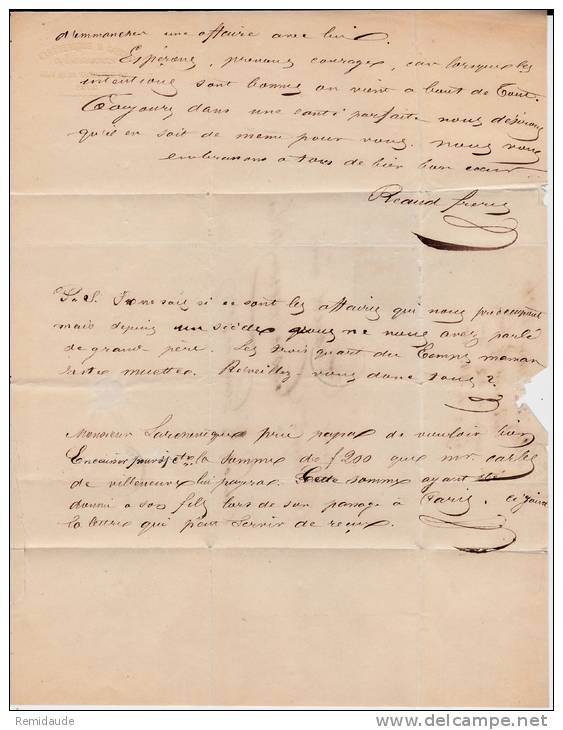 d'emmancher une affaire avec lui.
Espérons, prenons courage, car lorsque les
intentions sont bonnes on vient a bout de tout.
Toujours dans une santé parfaite nous désirons
qu'il en soit de meme pour vous. nous vous
embrassons a tous de bien bon coeur
Reaud freres
P.S. Je ne sais si ce sont les affaires qui nous préoccupent
mais depuis un siècle vous ne nous avez parlé
de grand père. Les trois quart du temps maman
reste muette. Réveillez-vous donc tous ?
Monsieur prie papa de vouloir bien
Encaisser pour la somme de f 200 que mr
de villeneuve lui payera. Cette somme ayant été
donné a son fils lors de son passage à Paris. ci joint
la lettre qui peut servir de reçu.
Remidaude
www.delcampe.net